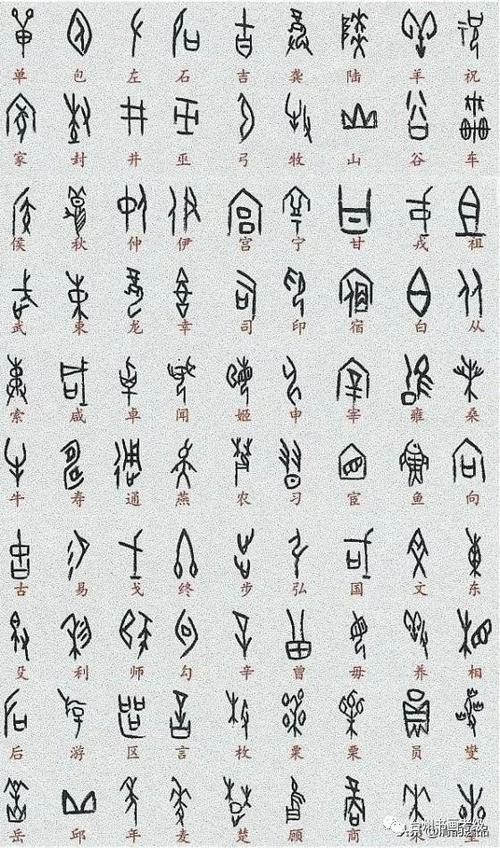 单 包 左 石 吉 龚 陆 羊 祝
家 封 井 巫 弓 牧 山 谷 车
侯 秋 仲 伊 宫 宁 甘 戎 祖
武 束 龙 幸 司 印 宿 白 从
索 咸 卓 闻 姬 申 宰 雍 桑
牛 寿 通 燕 农 习 宦 鱼 向
古 易 戈 终 步 弘 国 文 东
殳 利 师 勾 辛 曾 毋 养 相
后 游 区 言 枚 粟 栗 员 燮
岳 邱 年 麦 楚 顾 商